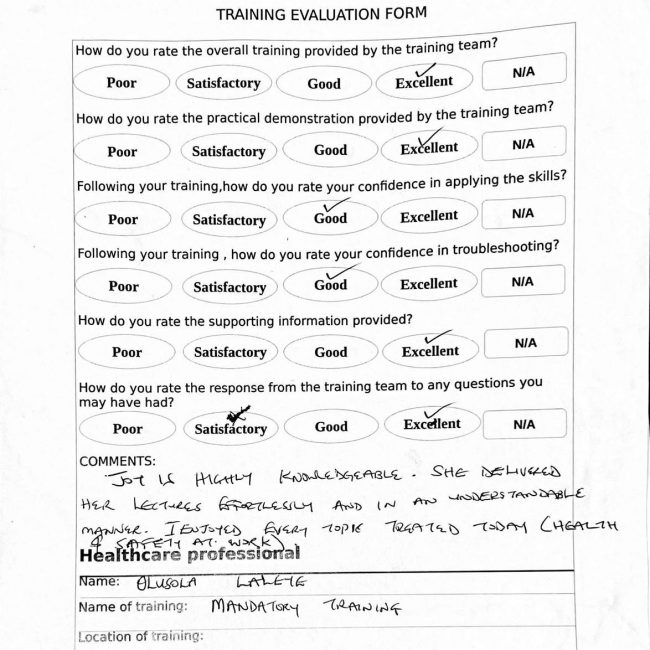 TRAINING EVALUATION FORM
How do you rate the overall training provided by the training team?
Poor Satisfactory Good Excellent N/A
How do you rate the practical demonstration provided by the training team?
Poor Satisfactory Good Excellent N/A
Following your training,how do you rate your confidence in applying the skills?
Poor Satisfactory Good Excellent N/A
Following your training , how do you rate your confidence in troubleshooting?
Poor Satisfactory Good Excellent N/A
How do you rate the supporting information provided?
Poor Satisfactory Good Excellent N/A
How do you rate the response from the training team to any questions you
may have had?
Poor Satisfactory Good Excellent N/A
COMMENTS:
JOY IS HIGHLY KNOWLEDGEABLE. SHE DELIVERED
HER LECTURES EFFORTLESSLY AND IN AN UNDERSTANDABLE
MANNER. I ENJOYED EVERY TOPIC TREATED TODAY (HEALTH
& SAFETY AT WORK).
Healthcare professional
Name: OLUSOLA LALEYE
Name of training: MANDATORY TRAINING
Location of training: